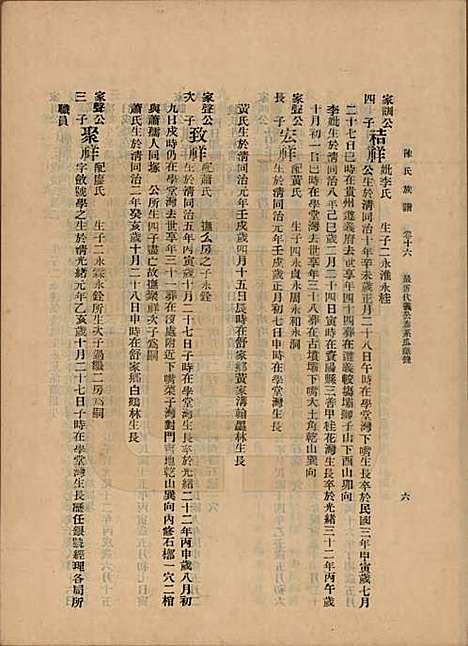 陳氏族譜 卷十六 六
家訓公
四子 秸祥 妣李氏 生子二永淮永桂
公生於清同治十年辛未歲正月二十八日午時在學堂灣下嘴生長卒於民國三年甲寅歲七月
二十七日巳時在貴州遵義府去世享年四十四葬在遵義較塲壩獅子山下酉山卯向
李妣生於清同治八年己巳歲二月二十四日戌時在資陽縣三善甲桂花灣生長卒於光緒三十二年丙午歲
十月初一日巳時在學堂灣去世享年三十八葬在古墳壩下嘴大土角乾山巽向
家聲公
長子 宏祥 配黃氏 生子四永貞永周永和永洞
生於清同治元年壬戌歲正月初七日申時在學堂灣生長
黃氏生於清同治元年壬戌歲四月十五日辰時在舒家鄉黃家溝翰墨林生長
家聲公
次子 致祥 配蕭氏 撫么房之子永銓
生於清同治五年丙寅歲十月二十七日子時在學堂灣下嘴生長卒於光緒二十二年丙申歲八月初
九日戌時仍在學堂灣去世享年三十一葬在窃處附近下嘴菜子灣對門荒地乾山巽向內修石槨一穴二棺
與蕭孺人同塚 公所生四子盡亡故撫聚祥次子爲嗣
蕭氏生於清同治二年癸亥歲十月二十八日申時在舒家鄉白鶴林生長
家聲公
三子 聚祥 配廖氏 生子二永霖永銓所生次子過繼二房爲嗣
字斂號學之生於清光緒元年乙亥歲十月二十七日子時在學堂灣生長歷任銀號經理各局所
職員